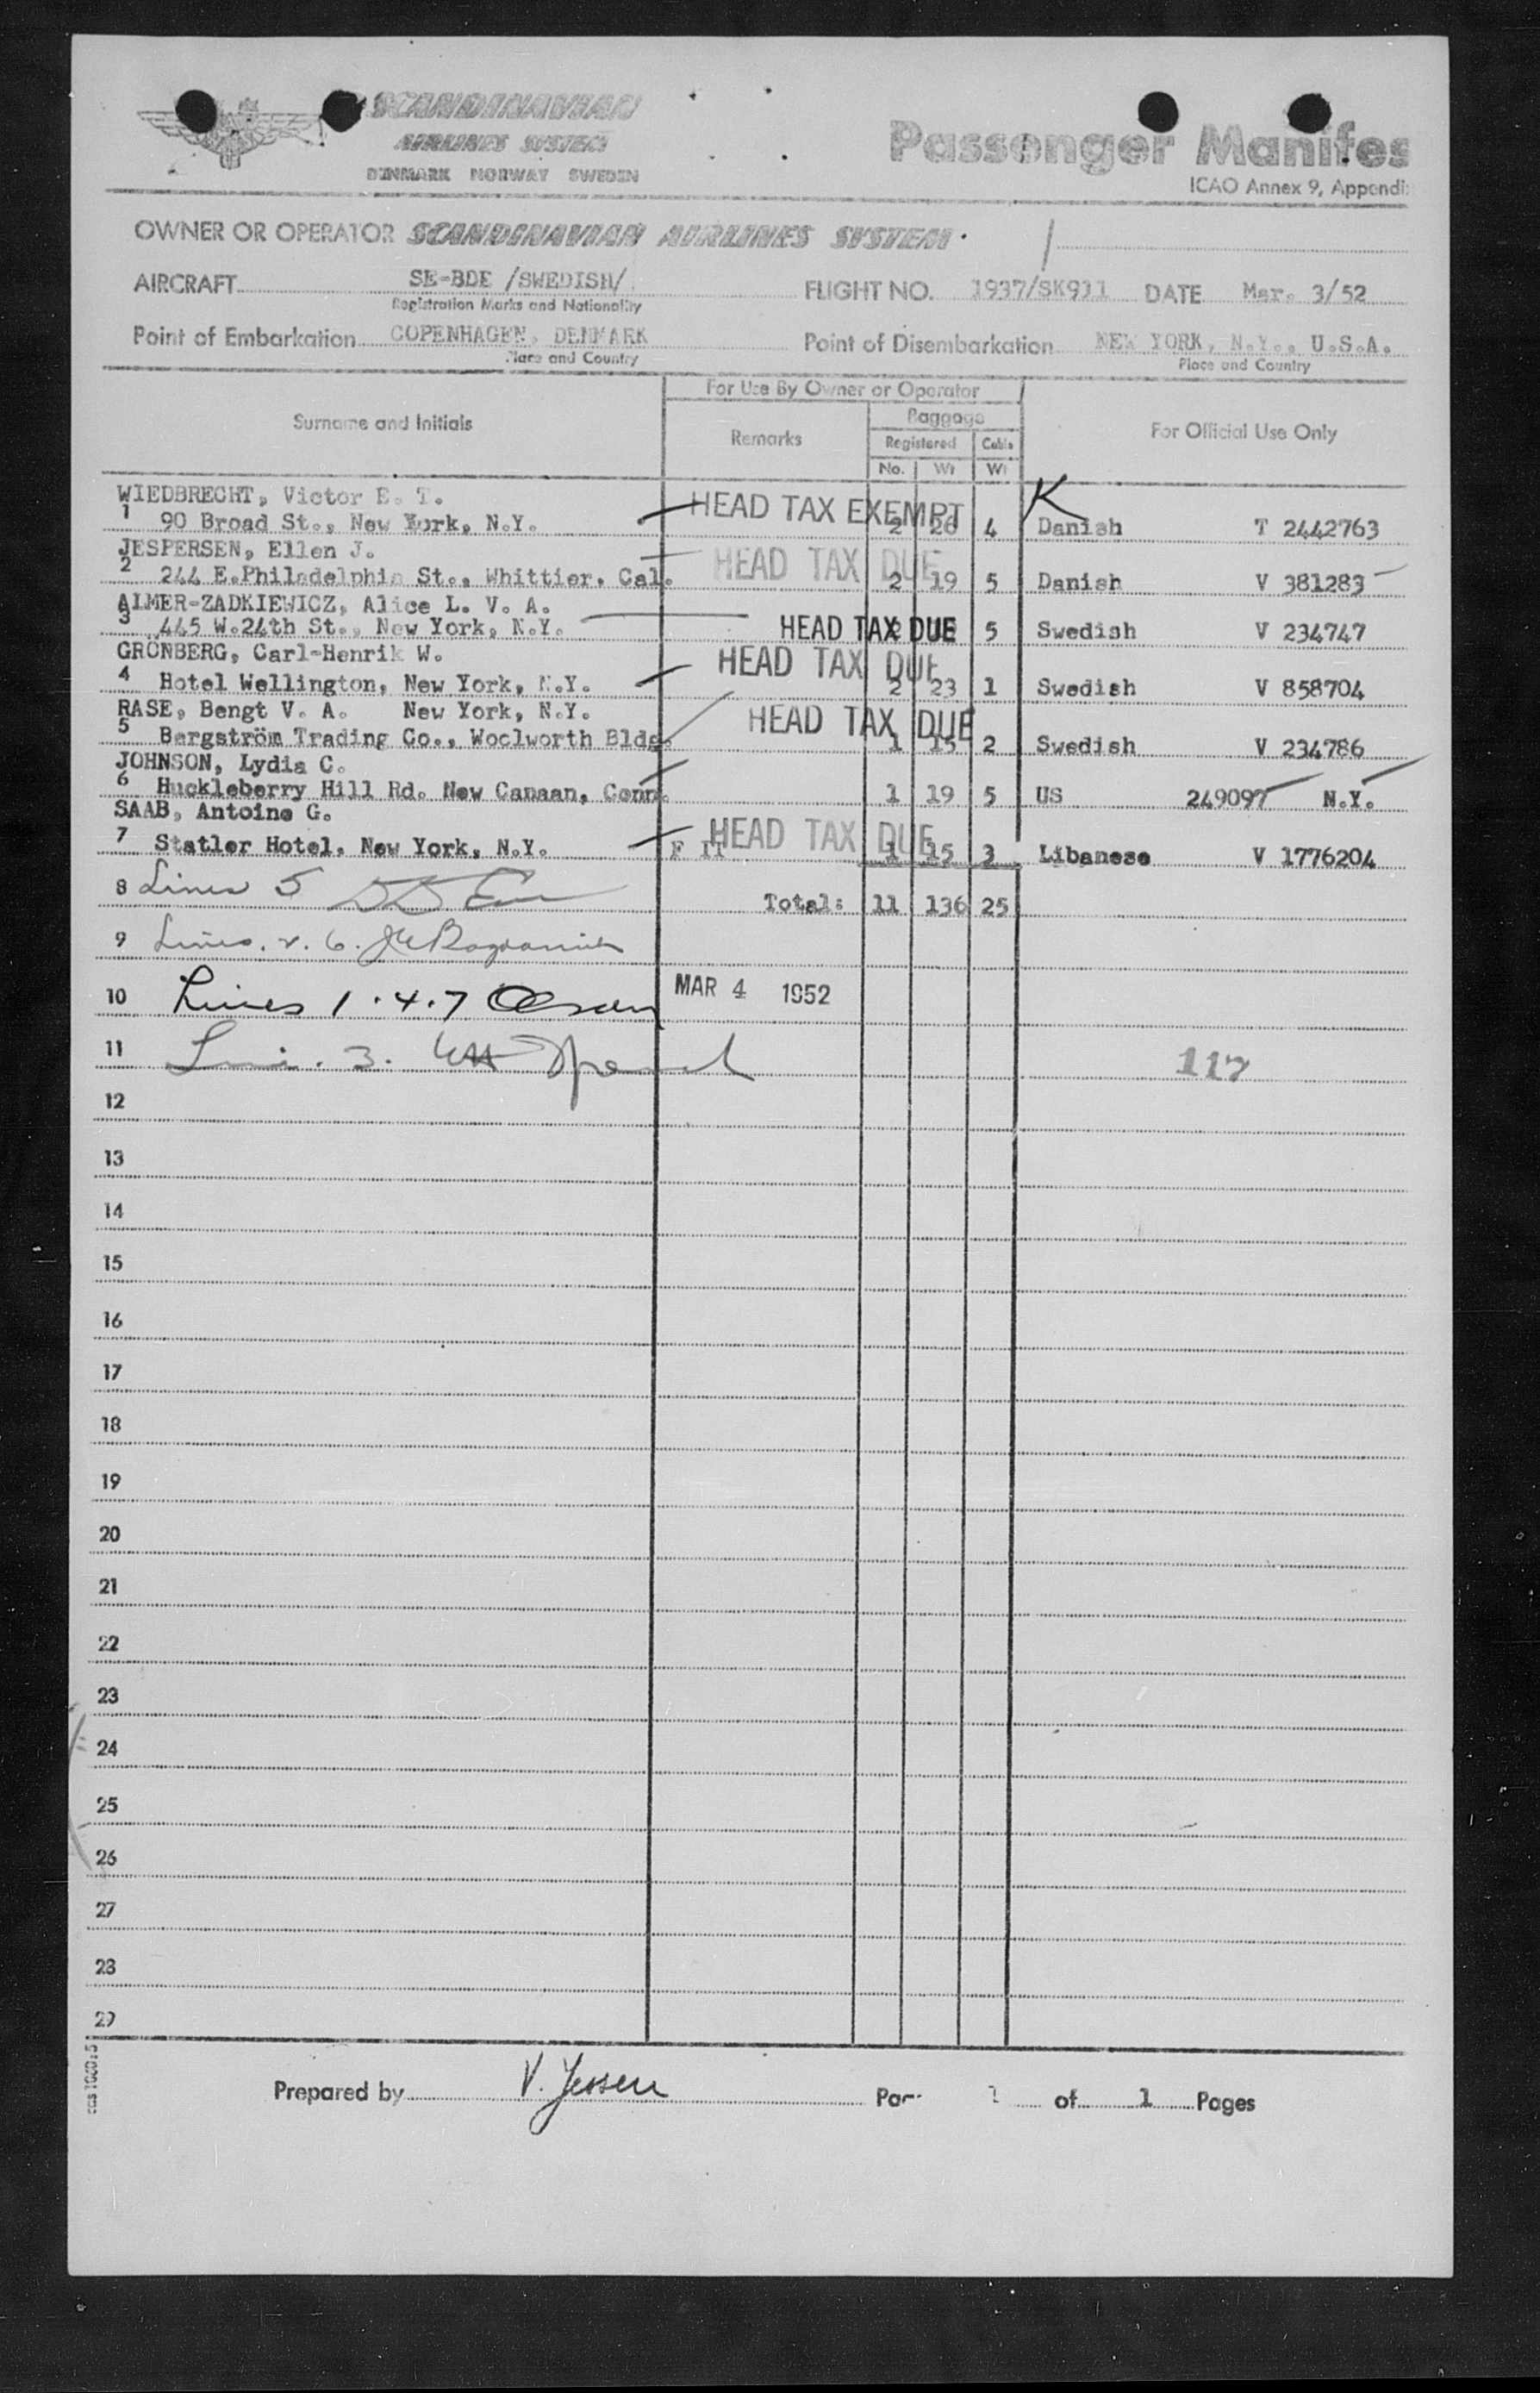 SCANDINAVIAN
AIRLINES SYSTEM
DENMARK NORWAY SWEDEN
Passenger Manifes
ICAO Annex 9, Appendi
OWNER OR OPERATOR SCANDINAVIAN AIRLINES SYSTEM
AIRCRAFT SE-BDE /SWEDISH/ FLIGHT NO. 1937/SK911 DATE Mar. 3/52
Registration Marks and Nationality
Point of Embarkation COPENHAGEN, DENMARK Point of Disembarkation NEW YORK, N.Y., U.S.A.
Place and Country Place and Country
For Use By Owner or Operator
Surname and Initials Remarks Baggage For Official Use Only
Registered Cabin
No. Wt Wt
WIEDBRECHT, Victor E. T. HEAD TAX EXEMPT K
1 90 Broad St., New York, N.Y. 2 26 4 Danish T 2442763
JESPERSEN, Ellen J. HEAD TAX DUE
2 244 E.Philadelphia St., Whittier, Cal. 2 19 5 Danish V 381283
ALMER-ZADKIEWICZ, Alice L. V. A.
3 445 W.24th St., New York, N.Y. HEAD TAX DUE 5 Swedish V 234747
GRÖNBERG, Carl-Henrik W. HEAD TAX DUE
4 Hotel Wellington, New York, N.Y. 2 23 1 Swedish V 858704
RASE, Bengt V. A. New York, N.Y. HEAD TAX DUE
5 Bergström Trading Co., Woolworth Bldg. 1 15 2 Swedish V 234786
JOHNSON, Lydia C.
6 Huckleberry Hill Rd. New Canaan, Conn. 1 19 5 US 249097 N.Y.
SAAB, Antoine G. HEAD TAX DUE
7 Statler Hotel, New York, N.Y. F IT 1 15 3 Libanese V 1776204
8 Lines 5 Total: 11 136 25
9 Lines. 2. 6.
10 Lines 1.4.7 Olson MAR 4 1952
11 3. 117
12
13
14
15
16
17
18
19
20
21
22
23
24
25
26
27
28
29
Prepared by V. Jessen 1 of 1 Pages